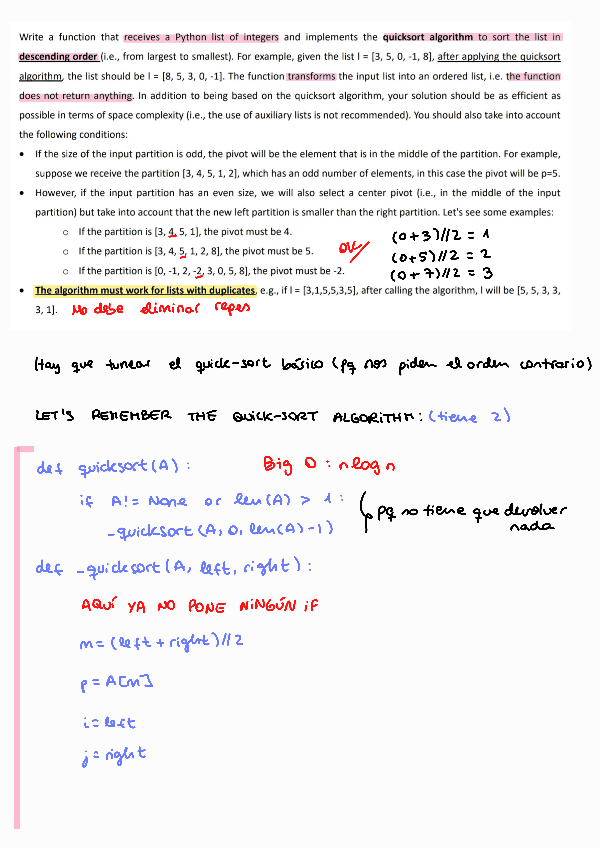 Write a function that receives a Python list of integers and implements the quicksort algorithm to sort the list in
descending order (i.e., from largest to smallest). For example, given the list l = [3, 5, 0, -1, 8], after applying the quicksort
algorithm, the list should be l = [8, 5, 3, 0, -1]. The function transforms the input list into an ordered list, i.e. the function
does not return anything. In addition to being based on the quicksort algorithm, your solution should be as efficient as
possible in terms of space complexity (i.e., the use of auxiliary lists is not recommended). You should also take into account
the following conditions:
• If the size of the input partition is odd, the pivot will be the element that is in the middle of the partition. For example,
suppose we receive the partition [3, 4, 5, 1, 2], which has an odd number of elements, in this case the pivot will be p=5.
• However, if the input partition has an even size, we will also select a center pivot (i.e., in the middle of the input
partition) but take into account that the new left partition is smaller than the right partition. Let's see some examples:
o If the partition is [3, 4, 5, 1], the pivot must be 4. (0+3)//2 = 1
o If the partition is [3, 4, 5, 1, 2, 8], the pivot must be 5. (0+5)//2 = 2
o If the partition is [0, -1, 2, -2, 3, 0, 5, 8], the pivot must be -2. (0+7)//2 = 3
• The algorithm must work for lists with duplicates, e.g., if l = [3,1,5,5,3,5], after calling the algorithm, l will be [5, 5, 3, 3,
3, 1]. No debe eliminar repes
Hay que tunear el quick-sort básico (pq nos piden el orden contrario)
LET'S REMEMBER THE QUICK-SORT ALGORITHM: (tiene 2)
def quicksort(A): Big O: nlogn
if A!= None or len(A) > 1: pq no tiene que devolver
nada
_quicksort(A, 0, len(A)-1)
def _quicksort(A, left, right):
AQUÍ YA NO PONE NINGÚN IF
m = (left + right)//2
p = A[m]
i = left
j = right